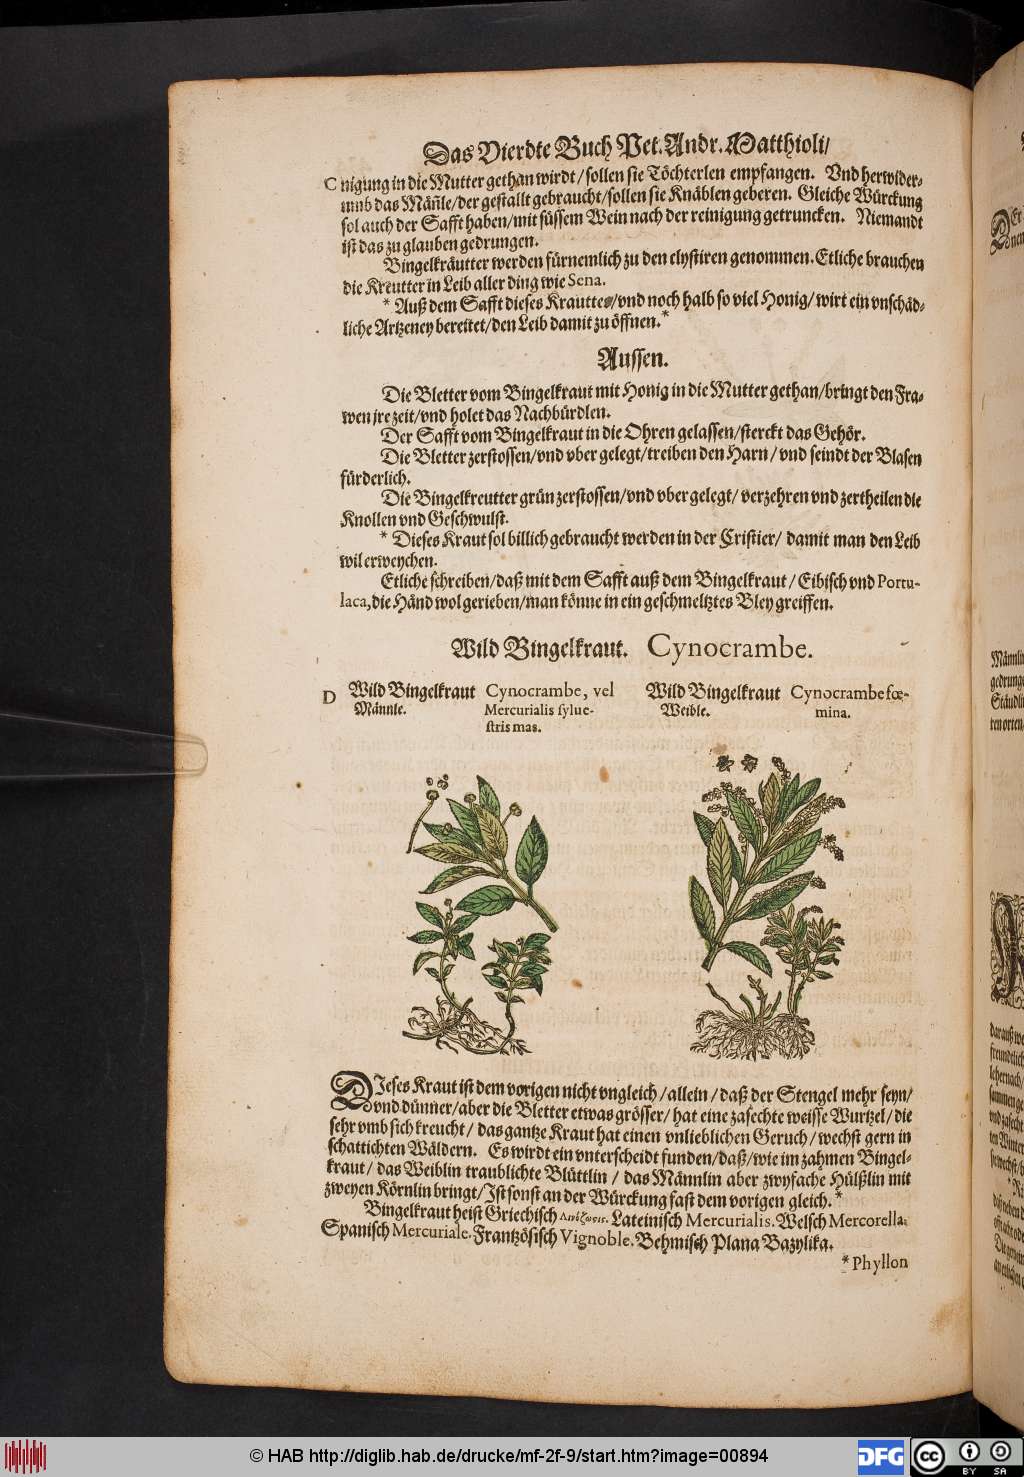 Das Vierdte Buch Pet. Andr. Matthioli/
C nigung in die Mutter gethan wirdt/sollen sie Töchterlen empfangen. Vnd herwider-
umb das Mäñle/der gestallt gebraucht/sollen sie Knäblen geberen. Gleiche Würckung
sol auch der Safft haben/mit süssem Wein nach der reinigung getruncken. Niemandt
ist das zu glauben gedrungen.
Bingelkräutter werden fürnemlich zu den clystiren genommen. Etliche brauchen
die Kreutter in Leib aller ding wie Sena.
* Auß dem Safft dieses Krauttes/vnd noch halb so viel Honig/wirt ein vnschäd-
liche Artzeney bereitet/den Leib damit zu öffnen.*
Aussen.
Die Bletter vom Bingelkraut mit Honig in die Mutter gethan/bringt den Fra-
wen jre zeit/vnd holet das Nachbürdlen.
Der Safft vom Bingelkraut in die Ohren gelassen/sterckt das Gehör.
Die Bletter zerstossen/vnd vber gelegt/treiben den Harn/vnd seindt der Blasen
fürderlich.
Die Bingelkreutter grün zerstossen/vnd vber gelegt/verzehren vnd zertheilen die
Knollen vnd Geschwulst.
* Dieses Kraut sol billich gebraucht werden in der Cristier/damit man den Leib
wil erweychen.
Etliche schreiben/daß mit dem Safft auß dem Bingelkraut/Eibisch vnd Portu-
laca, die Händ wol gerieben/man könne in ein geschmeltztes Bley greiffen.
Wild Bingelkraut. Cynocrambe.
D Wild Bingelkraut Männle. Cynocrambe, vel
Mercurialis sylue-
stris mas.
Wild Bingelkraut Weible. Cynocrambe fœ-
mina.
DJeses Kraut ist dem vorigen nicht vngleich/allein/daß der Stengel mehr seyn/
vnd dünner/aber die Bletter etwas grösser/hat eine zasechte weisse Wurtzel/die
sehr vmb sich kreucht/das gantze Kraut hat einen vnlieblichen Geruch/wechst gern in
schattichten Wäldern. Es wirdt ein vnterscheidt funden/daß/wie im zahmen Bingel-
kraut/das Weiblin traublichte Blüttlin/das Männlin aber zwyfache Hülßlin mit
zweyen Körnlin bringt/Jst sonst an der Würckung fast dem vorigen gleich.*
Bingelkraut heist Griechisch Lateinisch Mercurialis. Welsch Mercorella.
Spanisch Mercuriale. Frantzösisch Vignoble. Behmisch Plana Bazylika.
* Phyllon
© HAB http://diglib.hab.de/drucke/mf-2f-9/start.htm?image=00894
DFG
cc BY SA